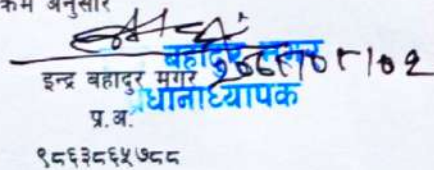 क्रम अनुसार
बहादुर मगर
इन्द्र बहादुर मगर
प्रधानाध्यापक
प्र.अ.
९८६३८६५७८८